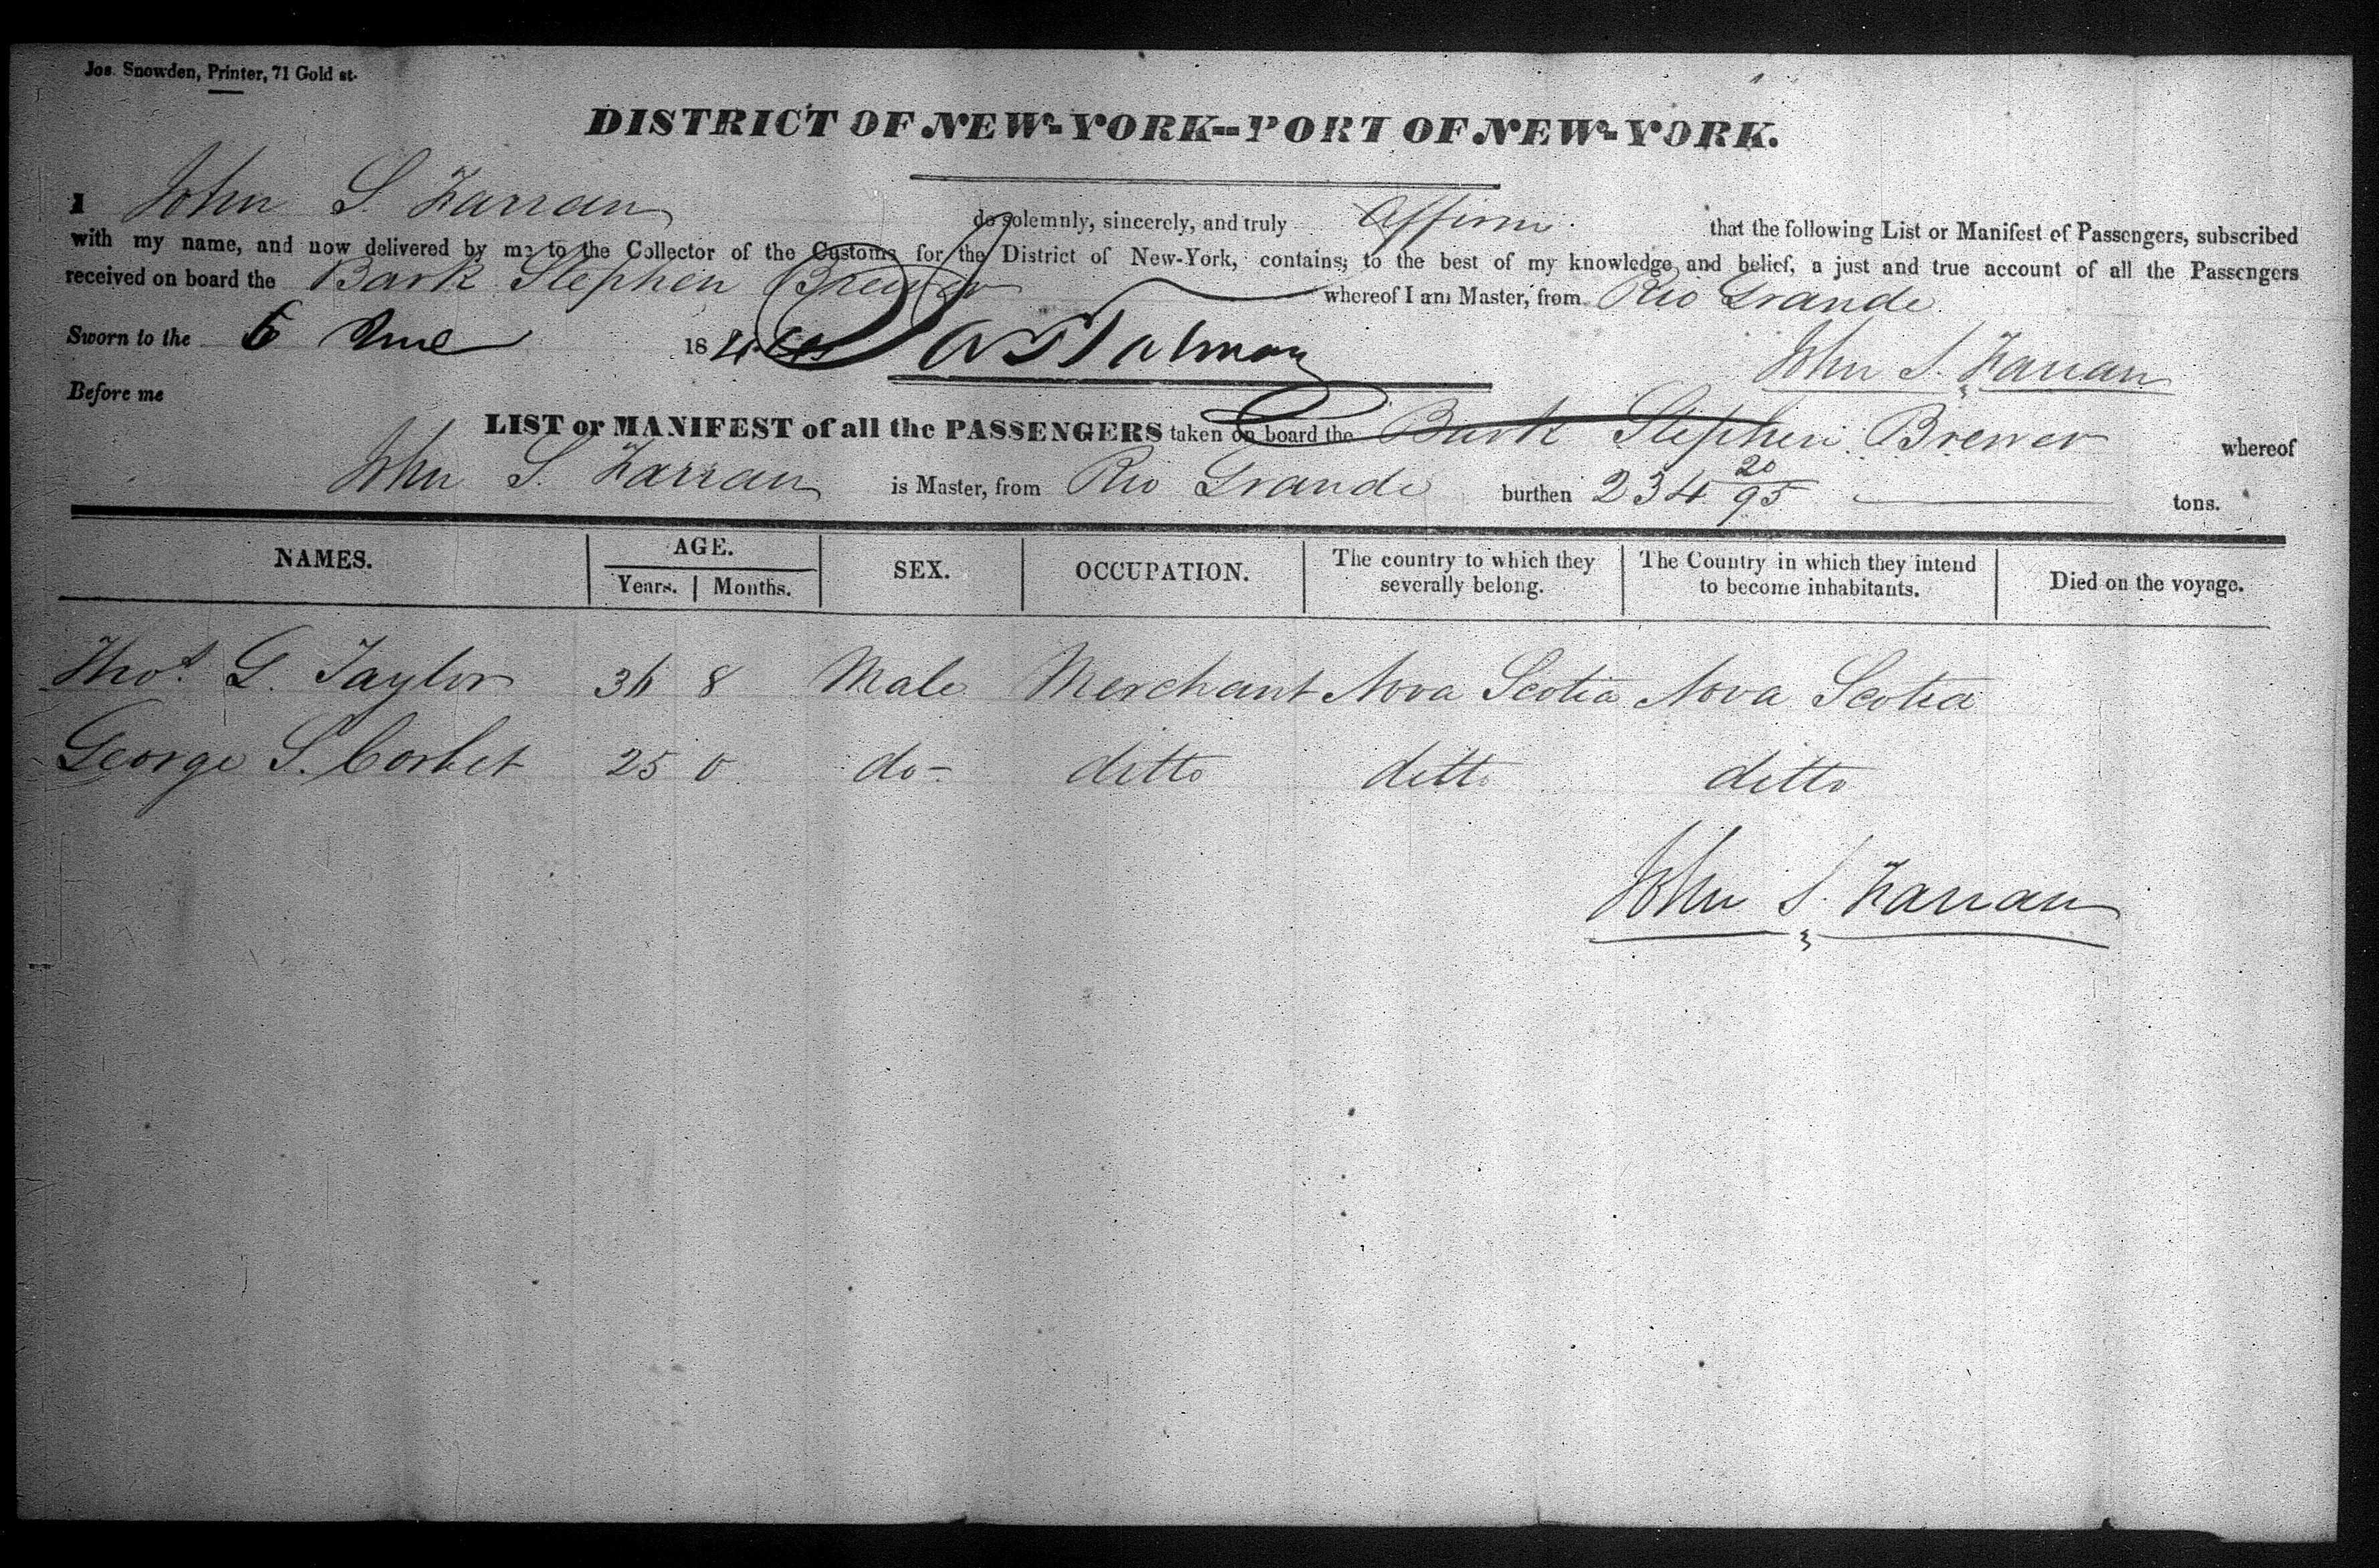 Jos. Snowden, Printer, 71 Gold st.
DISTRICT OF NEW-YORK--PORT OF NEW-YORK.
I John S. Farran do solemnly, sincerely, and truly Affirm that the following List or Manifest of Passengers, subscribed
with my name, and now delivered by me to the Collector of the Customs for the District of New-York, contains, to the best of my knowledge and belief, a just and true account of all the Passengers
received on board the Bark Stephen Brewer whereof I am Master, from Rio Grande
Sworn to the 6 June 184 John S. Farran
Before me
LIST or MANIFEST of all the PASSENGERS taken on board the Bark Stephen Brewer whereof
John S. Farran is Master, from Rio Grande burthen 234 20/95 tons.
NAMES. AGE. SEX. OCCUPATION. The country to which they severally belong. The Country in which they intend to become inhabitants. Died on the voyage.
Years. Months.
Thos. G. Taylor 36 8 Male Merchant Nova Scotia Nova Scotia
George S. Corbet 25 0 do- ditto ditto ditto
John S. Farran